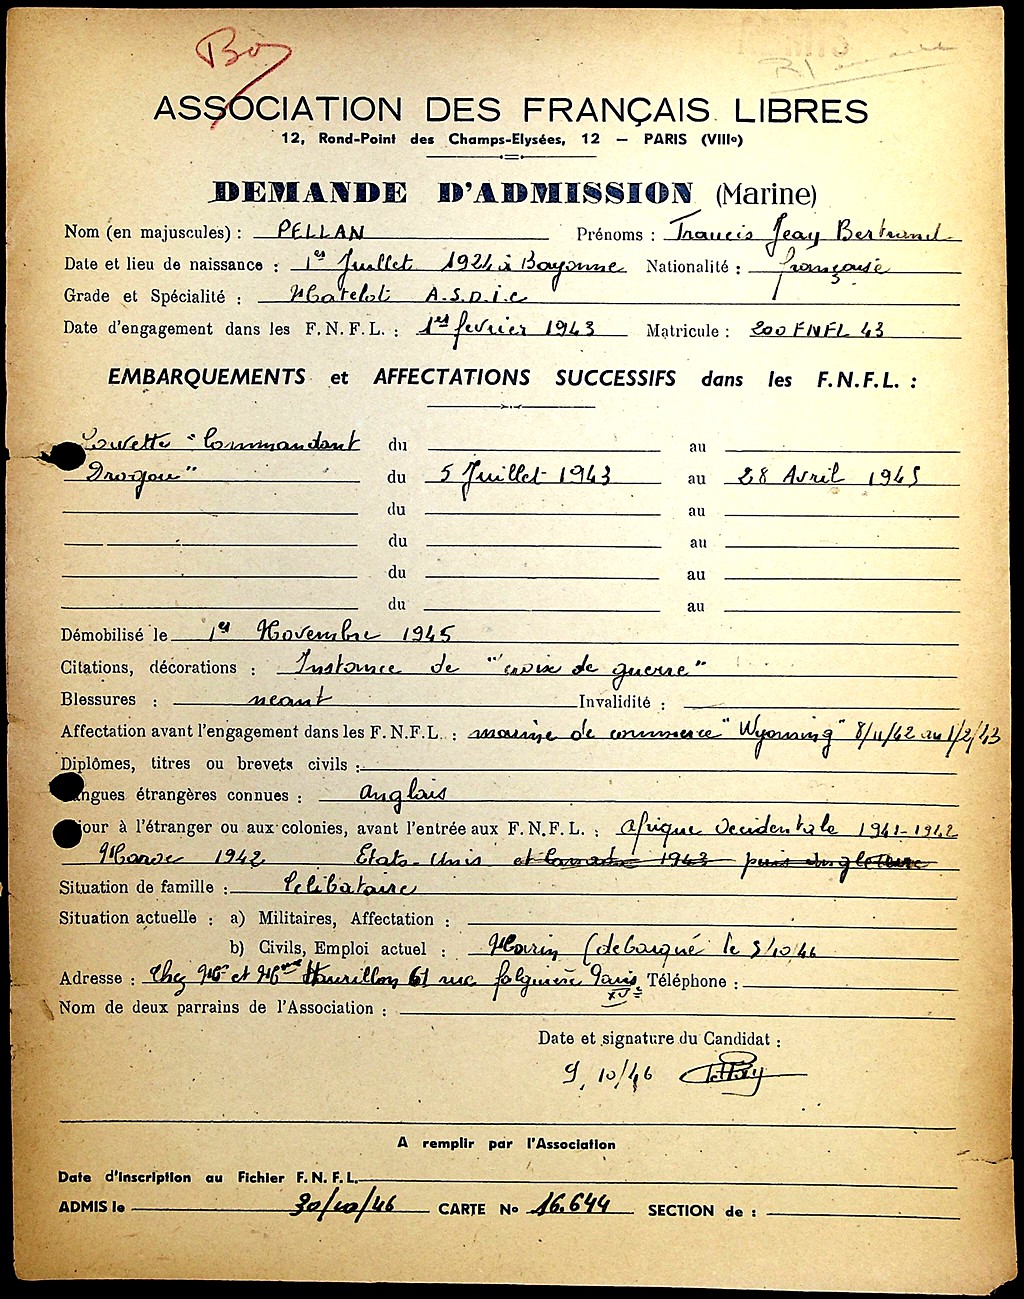 Bo
ASSOCIATION DES FRANÇAIS LIBRES
12, Rond-Point des Champs-Elysées, 12 — PARIS (VIIIº)
DEMANDE D'ADMISSION (Marine)
Nom (en majuscules) : PELLAN Prénoms : Francis Jean Bertrand
Date et lieu de naissance : 1er Juillet 1924 à Bayonne Nationalité : française
Grade et Spécialité : Matelot A.S.D.I.C
Date d'engagement dans les F.N.F.L. : 1er fevrier 1943 Matricule : 200 FNFL 43
EMBARQUEMENTS et AFFECTATIONS SUCCESSIFS dans les F.N.F.L. :
Corvette "Commandant du au
Drogou" du 5 Juillet 1943 au 28 Avril 1945
du au
du au
du au
du au
Démobilisé le 1er Novembre 1945
Citations, décorations : Instance de "croix de guerre"
Blessures : neant Invalidité :
Affectation avant l'engagement dans les F.N.F.L. : marine de commerce "Wyoming" 8/11/42 au 1/2/43
Diplômes, titres ou brevets civils :
ngues étrangères connues : anglais
jour à l'étranger ou aux colonies, avant l'entrée aux F.N.F.L. : afrique Occidentale 1941-1942
Maroc 1942 Etats-Unis et Canada 1943 puis Angleterre
Situation de famille : Celibataire
Situation actuelle : a) Militaires, Affectation :
b) Civils, Emploi actuel : Marin (debarqué le 5/10/46
Adresse : Chez Mr et Mme 61 rue falguière Paris XVe Téléphone :
Nom de deux parrains de l'Association :
Date et signature du Candidat :
9/10/46
A remplir par l'Association
Date d'inscription au Fichier F.N.F.L.
ADMIS le 30/10/46 CARTE No 16.644 SECTION de :